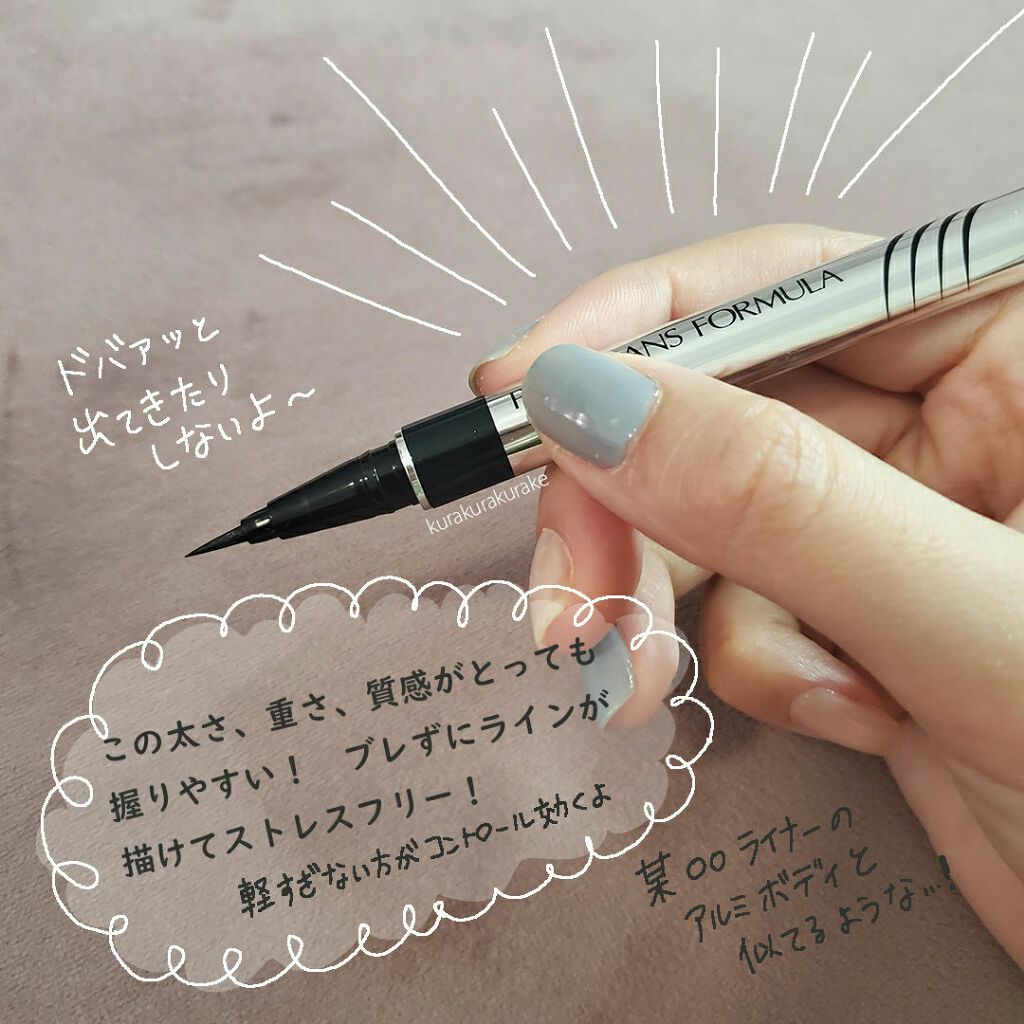 ドバァッと
出てきたり
しないよ～
ANS FORMULA
kurakurakurake
この太さ、重さ、質感がとっても
握りやすい！ ブレずにラインが
描けてストレスフリー！
軽すぎない方がコントロール効くよ
某○○ライナーの
アルミボディと
似てるような…！